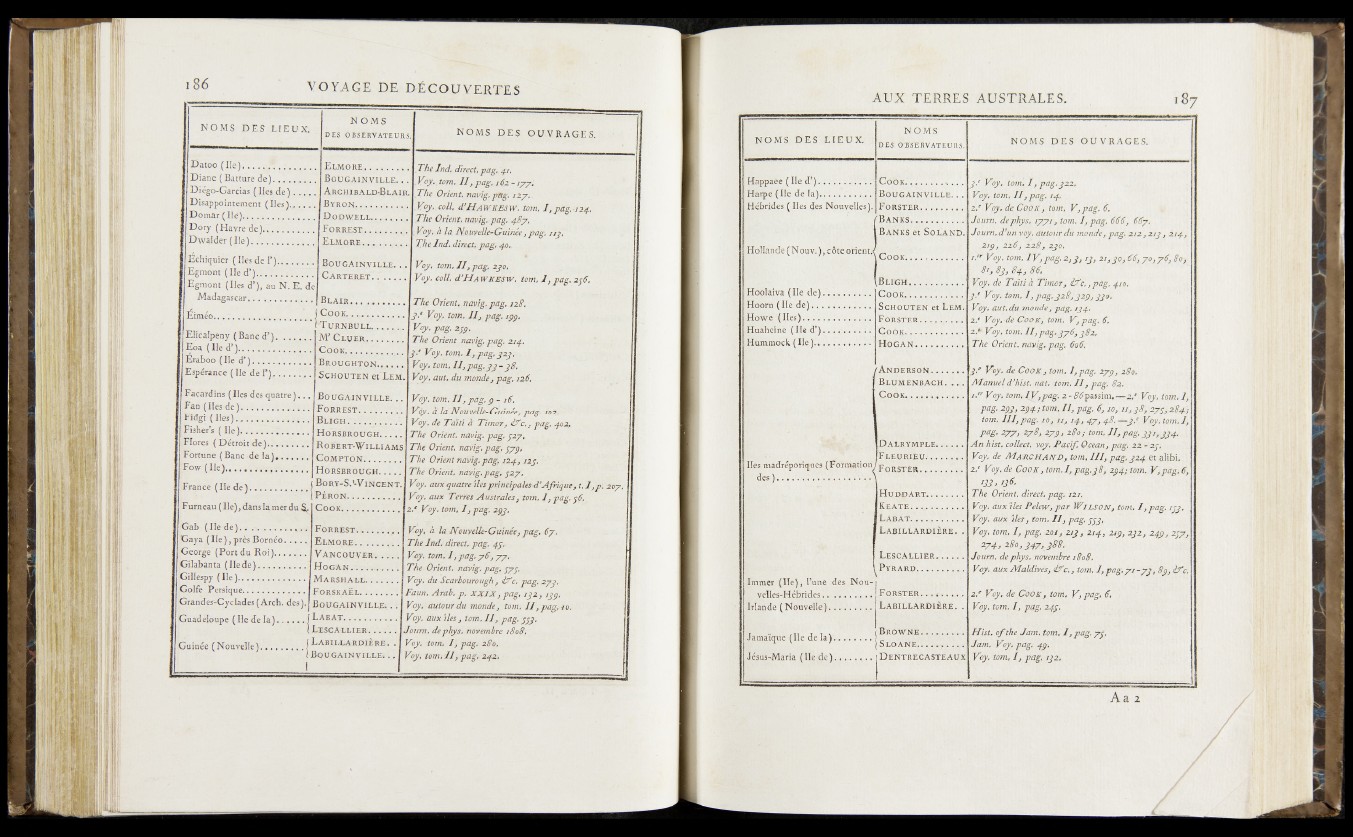 186 VOYAGE DE DÉCOUVERTES
NOMS DES LIEUX. NOMS DES OBSERVATEURS. NOMS DES OUVRAGES.
Datoo (Ile)............... ELMORE......... The Ind. direct. pag. 41.
Diane (Batture de)......... BOUGAINVILLE... Voy. tom. II, pag. 162-177.
Diégo-Garcias (Iles de)..... ARCHIBALD-BLAIR. The Orient. navig. pag. 127.
Disappointement (Iles)...... BYRON........... Voy. coll. d'HAWKESW. tom. I, pag. 124.
Domar (Ile)............... DODWELL........ The Orient. navig. pag. 487.
Dory (Havre de)........... FORREST......... Voy. à la Nouvelle-Guinée, pag. 113.
Dwalder (Ile)............. ELMORE......... The Ind. direct. pag. 40.
Échiquier (Iles de l')........ BOUGAINVILLE... Voy. tom. II, pag. 230.
Egmont (Ile d')............ CARTERET....... Voy. coll. d'HAWKESW. tom. I, pag. 256.
Egmont (Iles d'), au N. E. de
Madagascar............. BLAIR........... The Orient. navig. pag. 128.
Éiméo.................... COOK........... 3.e Voy. tom. II, pag. 199.
TURNBULL....... Voy. pag. 259.
Elicalpeny (Banc d')........ Mr CLUER........ The Orient navig. pag. 214.
Eoa (Ile d')............... COOK........... 3.e Voy. tom. I, pag. 323.
Éraboo (Ile d')............ BROUGHTON...... Voy. tom. II, pag. 33-38.
Espérance (Ile de l')........ SCHOUTEN et LEM. Voy. aut. du monde, pag. 126.
Facardins (Iles des quatre)... BOUGAINVILLE... Voy. tom. II, pag. 9-16.
Fan (Iles de).............. FORREST......... Voy. à la Nouvelle-Guinée, pag.
Fidgi (Iles)............... BLIGH........... Voy. de Taïti à Timor, &c., pag. 402.
Fisher's (Ile).............. HORSBROUGH..... The Orient. navig. pag. 527.
Flores (Détroit de)......... ROBERT-WILLIAMS The Orient. navig. pag. 579.
Fortune (Banc de la)....... COMPTON........ The Orient navig. pag. 124, 125.
Fow (Ile)................. HORSBROUGH..... The Orient. navig. pag. 527.
France (Ile de)............ BORY-S.t-VINCENT. Voy. aux quatre îles principales d'Afrique, t. I, p. 207.
PÉRON........... Voy. aux Terres Australes, tom. I, pag. 56.
Furneau (Ile), dans la mer du S. COOK............ 2.e Voy. tom. I, pag. 293.
Gab (Ile de).............. FORREST......... Voy. à la Nouvelle-Guinée, pag. 67.
Gaya (Ile), près Bornéo..... ELMORE......... The Ind. direct. pag. 45.
George (Port du Roi)....... VANCOUVER..... Voy. tom. I, pag. 76, 77.
Gilabanta (Ile de).......... HOGAN.......... The Orient. navig. pag. 575.
Gillespy (Ile).............. MARSHALL....... Voy. du Scarbourough, &c. pag. 273.
Golfe Persique............. FORSKAËL........ Faun. Arab. p. XXIX, pag. 132, 139.
Grandes-Cyclades (Arch. des). BOUGAINVILLE... Voy. autour du monde, tom. II, pag. 10.
Guadeloupe (Ile de la)...... LABAT........... Voy. aux îles, tom. II, pag. 553.
LESCALLIER...... Journ. de phys. novembre 1808.
Guinée (Nouvelle)......... LABILLARDIÈRE.. Voy. tom. I, pag. 280.
BOUGAINVILLE... Voy. tom. II, pag. 242.
AUX TERRES AUSTRALES. 187
NOMS DES LIEUX. NOMS DES OBSERVATEURS. NOMS DES OUVRAGES.
Happaee (Ile d')........... COOK............ 3.e Voy. tom. I, pag. 322.
Harpe (Ile de la)........... BOUGAINVILLE... Voy. tom. II, pag. 14.
Hébrides (Iles des Nouvelles). FORSTER......... 2.e Voy. de COOK, tom. V, pag. 6.
BANKS........... Journ. de phys. 1771, tom. I, pag. 666, 667.
BANKS et SOLAND. Journ. d'un voy. autour du monde, pag. 212, 213, 214,
219, 226, 228, 230.
Hollande (Nouv.), côte orient. COOK............ 1.er Voy. tom. IV, pag. 2, 3, 13, 21, 30, 66, 70, 76, 80,
81, 83, 84, 86.
BLIGH........... Voy. de Taïti à Timor, &c., pag. 410.
Hoolaiva (Ile de).......... COOK............ 3.e Voy. tom. I, pag. 328, 329, 330.
Hoorn (Ile de)............ SCHOUTEN et LEM. Voy. aut. du monde, pag. 134.
Howe (Iles)............... FORSTER......... 2.e Voy. de COOK, tom. V, pag. 6.
Huaheine (Ile d').......... COOK........... 2.e Voy. tom. II, pag. 376, 382.
Hummock (Ile)........... HOGAN.......... The Orient. navig. pag. 606.
ANDERSON....... 3.e Voy. de COOK, tom. I, pag. 279, 280.
BLUMENBACH.... Manuel d'hist. nat. tom. II, pag. 82.
COOK............ 1.er Voy. tom. IV, pag. 2-86 passim. — 2.e Voy. tom. I,
pag. 293, 294; tom. II, pag. 6, 10, 11, 38, 275, 284;
tom. III, pag. 10, 11, 14, 47, 48. — 3.e Voy. tom. I,
pag. 277, 278, 279, 280; tom. II, pag. 331, 334.
DALRYMPLE...... An hist. collect. voy. Pacif. Ocean, pag. 22-25.
FLEURIEU........ Voy. de MARCHAND, tom. III, pag. 324 et alibi.
Iles madréporiques (Formation
des)................... FORSTER......... 2.e Voy. de COOK, tom. I, pag. 38, 294; tom. V, pag. 6,
133, 136.
HUDDART........ The Orient. direct. pag. 121.
KEATE........... Voy. aux îles Pelew, par WILSON, tom. I, pag. 153.
LABAT........... Voy. aux îles, tom. II, pag. 553.
LABILLARDIÈRE.. Voy. tom. I, pag. 201, 213, 214, 219, 232, 249, 257,
274, 280, 347, 388.
LESCALLIER...... Journ. de phys. novembre 1808.
PYRARD.......... Voy. aux Maldives, &c., tom. I, pag. 71-73, 89, &c.
Immer (Ile), l'une des Nou-
velles-Hébrides........... FORSTER......... 2.e Voy. de COOK, tom. V, pag. 6.
Irlande (Nouvelle)......... LABILLARDIÈRE.. Voy. tom. I, pag. 245.
Jamaïque (Ile de la)........ BROWNE......... Hist. of the Jam. tom. I, pag. 75.
SLOANE.......... Jam. Voy. pag. 49.
Jésus-Maria (Ile de)........ DENTRECASTEAUX Voy. tom. I, pag. 132.
Aa 2